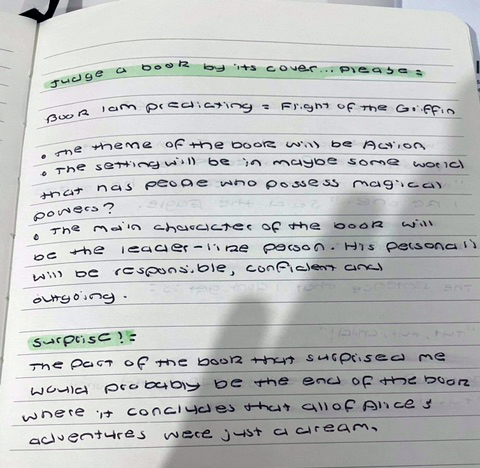 Judge a book by its cover... please:
Book I am predicting = Flight of the Griffin
• The theme of the book will be Action
• The setting will be in maybe some world
that has people who possess magical
powers?
• The main character of the book will
be the leader-like person. His personali
will be responsible, confident and
outgoing.
Surprise!:
The part of the book that surprised me
would probably be the end of the book
where it concludes that all of Alice's
adventures were just a dream.